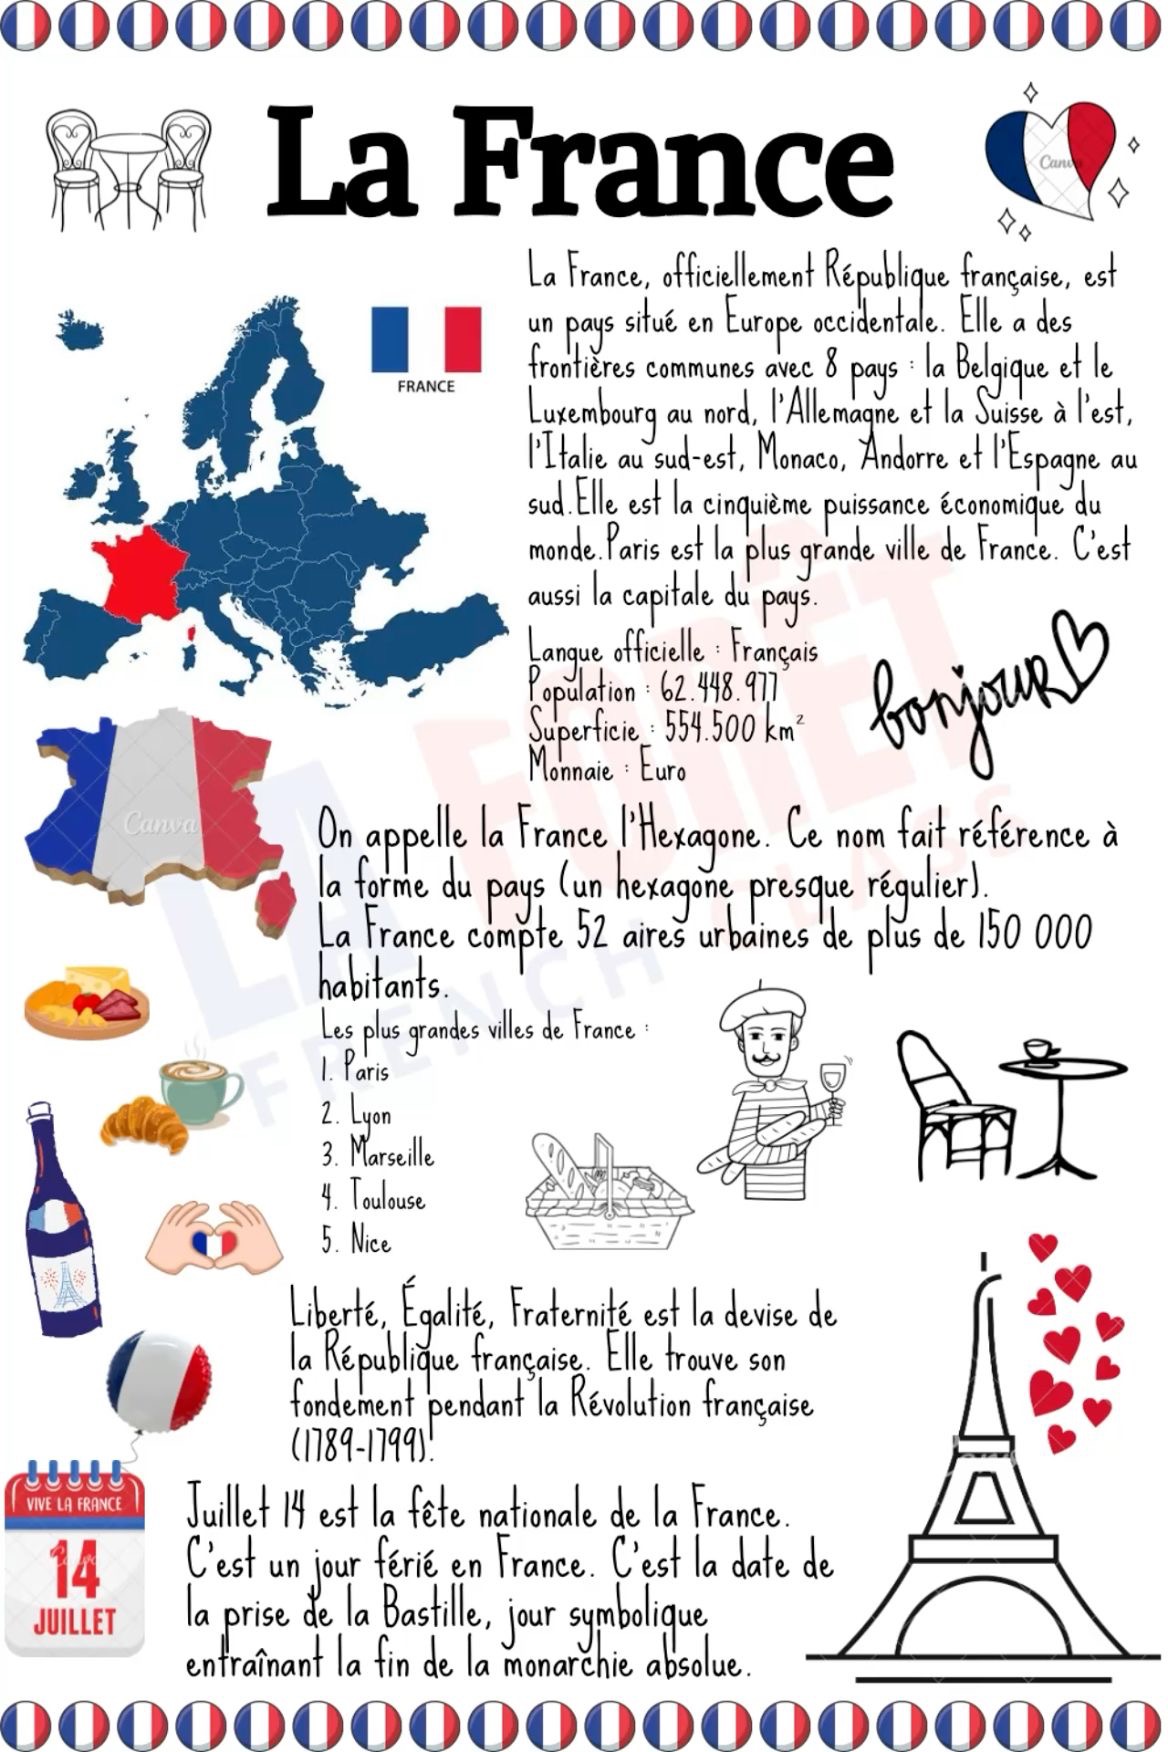 La France
Canva
La France, officiellement République française, est
un pays situé en Europe occidentale. Elle a des
frontières communes avec 8 pays : la Belgique et le
Luxembourg au nord, l'Allemagne et la Suisse à l'est,
l'Italie au sud-est, Monaco, Andorre et l'Espagne au
sud.Elle est la cinquième puissance économique du
monde.Paris est la plus grande ville de France. C'est
aussi la capitale du pays.
FRANCE
Langue officielle : Français
Population : 62.448.977
Superficie : 554.500 km²
Monnaie : Euro
bonjour
Canva
On appelle la France l'Hexagone. Ce nom fait référence à
la forme du pays (un hexagone presque régulier).
La France compte 52 aires urbaines de plus de 150 000
habitants.
LA FORÊT
FRENCH CLASS
Les plus grandes villes de France :
1. Paris
2. Lyon
3. Marseille
4. Toulouse
5. Nice
Liberté, Égalité, Fraternité est la devise de
la République française. Elle trouve son
fondement pendant la Révolution française
(1789-1799).
VIVE LA FRANCE
14
JUILLET
Juillet 14 est la fête nationale de la France.
C'est un jour férié en France. C'est la date de
la prise de la Bastille, jour symbolique
entraînant la fin de la monarchie absolue.